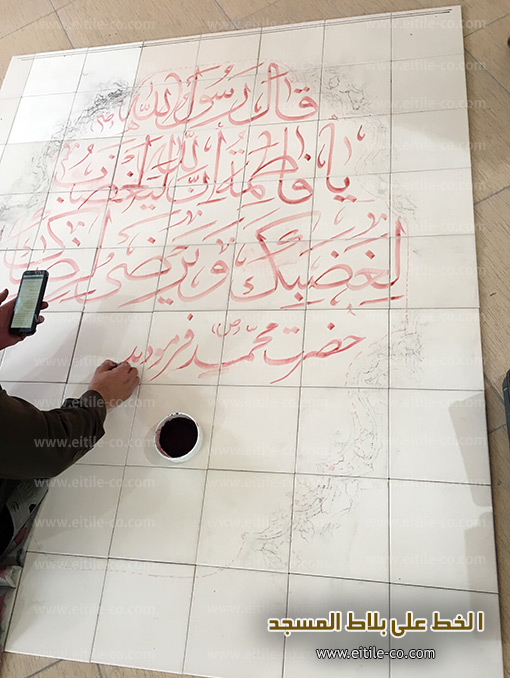 قال رسول الله (ص)
يا فاطمة إن الله ليغضب
لغضبك و يرضى لرضاك
حضرت محمد (ص) فرمودند
الخط على بلاط المسجد
www.eitile-co.com